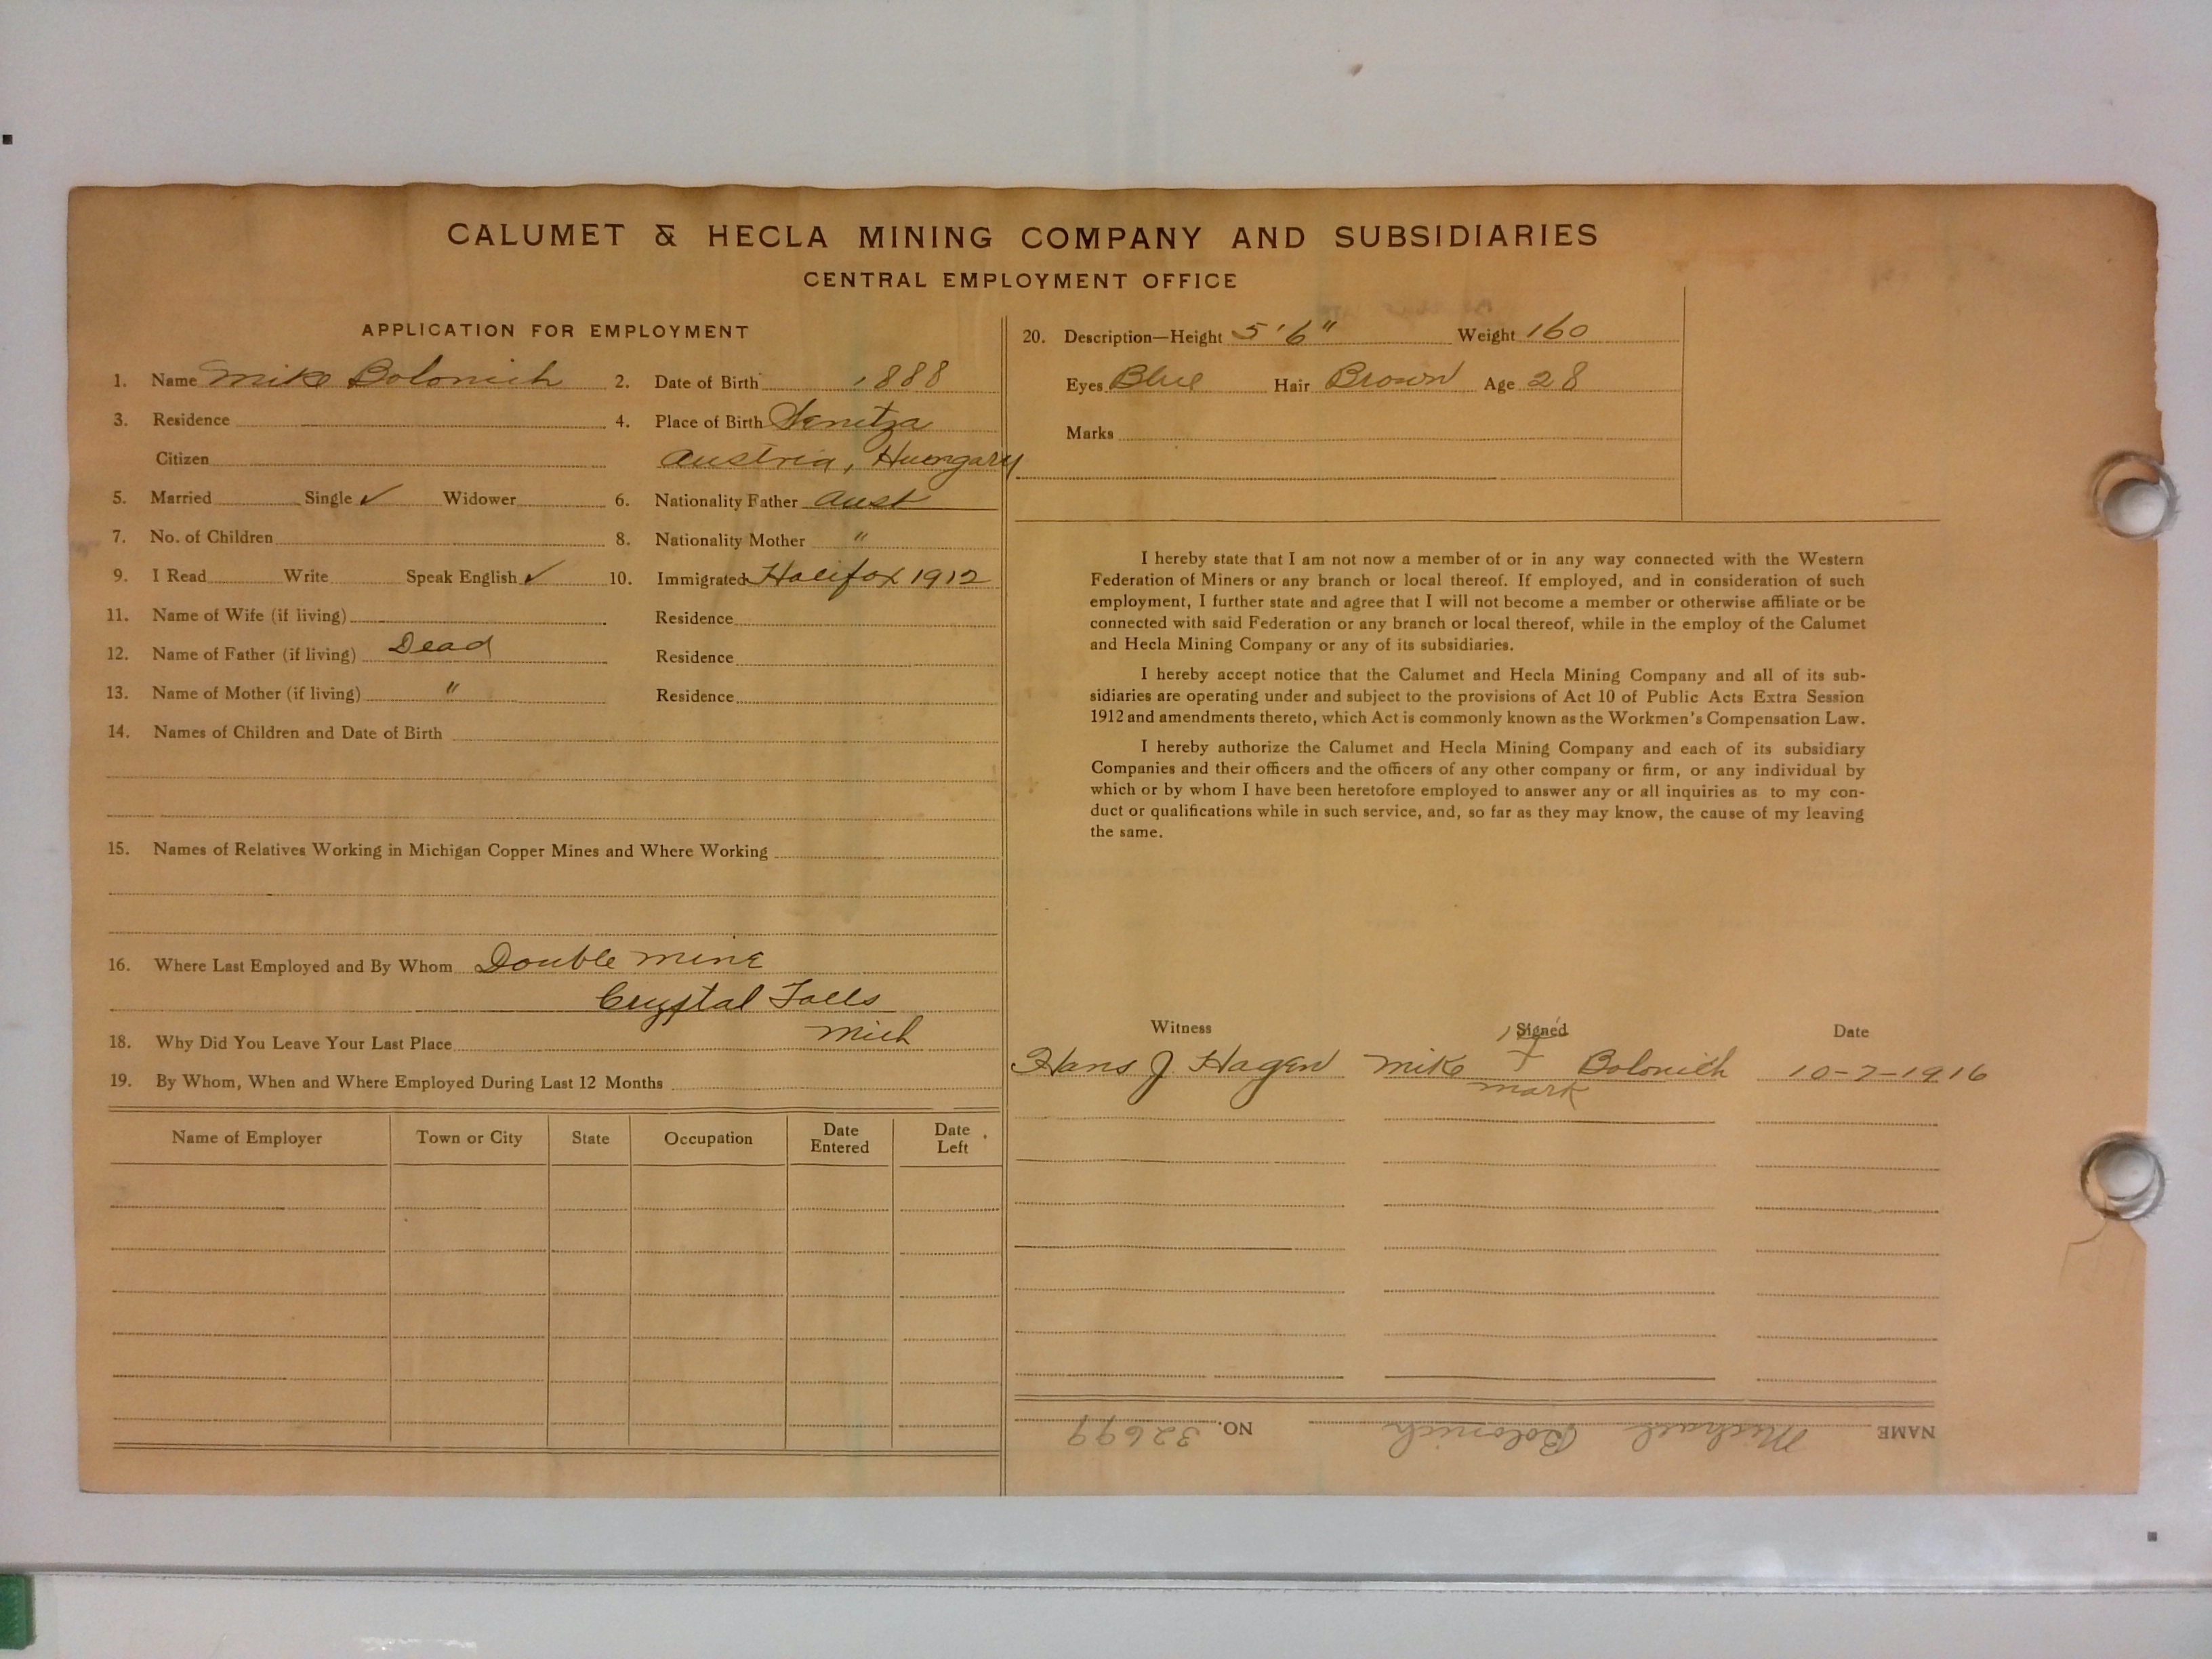 CALUMET & HECLA MINING COMPANY AND SUBSIDIARIES
CENTRAL EMPLOYMENT OFFICE
APPLICATION FOR EMPLOYMENT
1. Name Mike Bolonich 2. Date of Birth 1888
3. Residence 4. Place of Birth Senitza
Citizen Austria, Huengary
5. Married Single ✓ Widower 6. Nationality Father Aust
7. No. of Children 8. Nationality Mother "
9. I Read Write Speak English ✓ 10. Immigrated Halifax 1912
11. Name of Wife (if living) Residence
12. Name of Father (if living) Dead Residence
13. Name of Mother (if living) " Residence
14. Names of Children and Date of Birth
15. Names of Relatives Working in Michigan Copper Mines and Where Working
16. Where Last Employed and By Whom Double mine
Crystal Falls
Mich
18. Why Did You Leave Your Last Place
19. By Whom, When and Where Employed During Last 12 Months
Name of Employer Town or City State Occupation Date Entered Date Left
20. Description—Height 5'6" Weight 160
Eyes Blue Hair Brown Age 28
Marks
I hereby state that I am not now a member of or in any way connected with the Western
Federation of Miners or any branch or local thereof. If employed, and in consideration of such
employment, I further state and agree that I will not become a member or otherwise affiliate or be
connected with said Federation or any branch or local thereof, while in the employ of the Calumet
and Hecla Mining Company or any of its subsidiaries.
I hereby accept notice that the Calumet and Hecla Mining Company and all of its sub-
sidiaries are operating under and subject to the provisions of Act 10 of Public Acts Extra Session
1912 and amendments thereto, which Act is commonly known as the Workmen's Compensation Law.
I hereby authorize the Calumet and Hecla Mining Company and each of its subsidiary
Companies and their officers and the officers of any other company or firm, or any individual by
which or by whom I have been heretofore employed to answer any or all inquiries as to my con-
duct or qualifications while in such service, and, so far as they may know, the cause of my leaving
the same.
Witness Signed Date
Hans J Hagen Mike X Bolonich 10-7-1916
mark
NAME Michael Bolonich NO. 32699